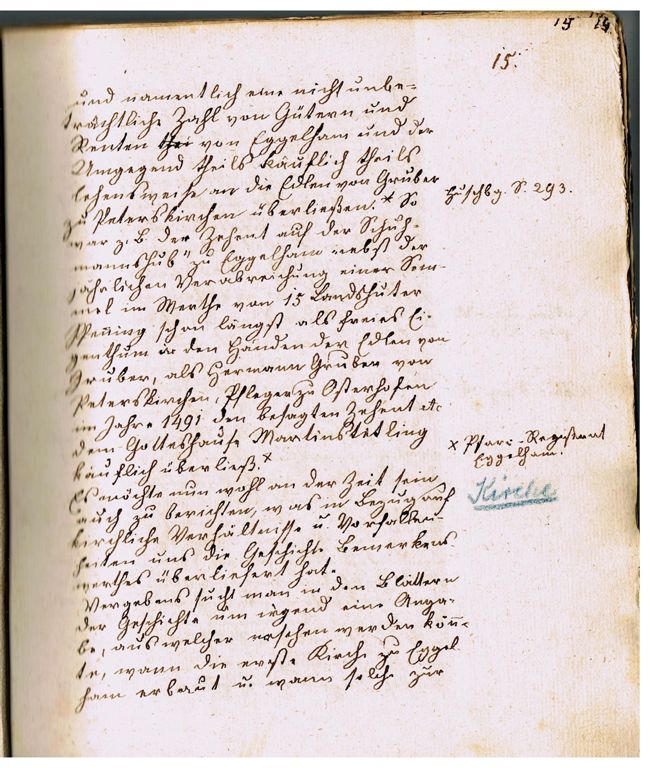 19 19
15.
und namentlich eine nicht unbe-
trächtliche Zahl von Gütern und
Renten von Eggelham und der
Umgegend theils käuflich theils
lehensweise an die Edlen von Gruber
zu Peterskirchen überließen.* So
war z. B. der Zehent auf der Schuh-
mannshub" zu Eggelham nebst der
jährlichen Verabreichung einer Sem-
mel im Werthe von 15 Landshuter
Pfenning schon längst als freies Ei-
genthum in den Händen der Edlen von
Gruber, als Hermann Gruber von
Peterskirchen, Pfleger zu Osterhofen
im Jahre 1491 den besagten Zehent etc
dem Gotteshause Martinstetling
käuflich überließ.x
Es möchte nun wohl an der Zeit sein
auch zu berichten, was in Bezug auf
kirchliche Verhältnisse u. Vorfallen-
heiten uns die Geschichte Bemerkens-
werthes überliefert hat.
Vergebens sucht man in den Blättern
der Geschichte um irgend eine Anga-
be, aus welcher ersehen werden könn-
te, wann die erste Kirche zu Eggel-
ham erbaut u. wann solche zur
Huschbg. S. 293.
x Pfarr-Registrat
Eggelham.
Kirche